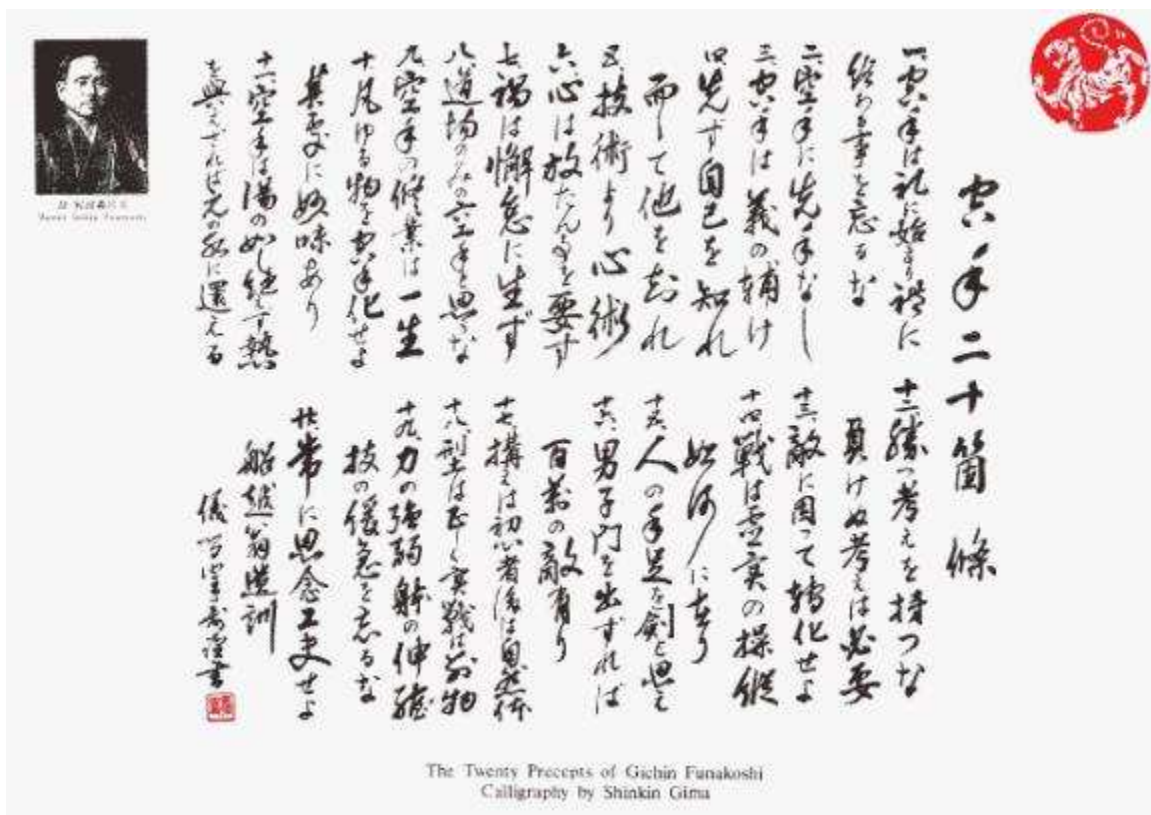 空手二十箇條
一、空手は礼に始まり禮に
終わる事を忘るな
二、空手に先手なし
三、空手は義の輔け
四、先ず自己を知れ
而して他を知れ
五、技術より心術
六、心は放たん事を要す
七、禍は懈怠に生ず
八、道場のみの空手と思うな
九、空手の修業は一生
十、凡ゆる物を空手化せよ
其処に妙味あり
十一、空手は湯の如し絶えず熱
を與えざれば元の水に還える
十二、勝つ考えを持つな
負けぬ考えは必要
十三、敵に因って轉化せよ
十四、戦は虚実の操縦
如何に在り
十五、人の手足を剣と思え
十六、男子門を出ずれば
百萬の敵有り
十七、構えは初心者後は自然体
十八、型は正しく実戦は別物
十九、力の強弱躰の伸縮
技の緩急を忘るな
廿、常に思念工夫せよ
船越翁遺訓
儀 書
Gichin Funakoshi
The Twenty Precepts of Gichin Funakoshi
Calligraphy by Shinkin Gima